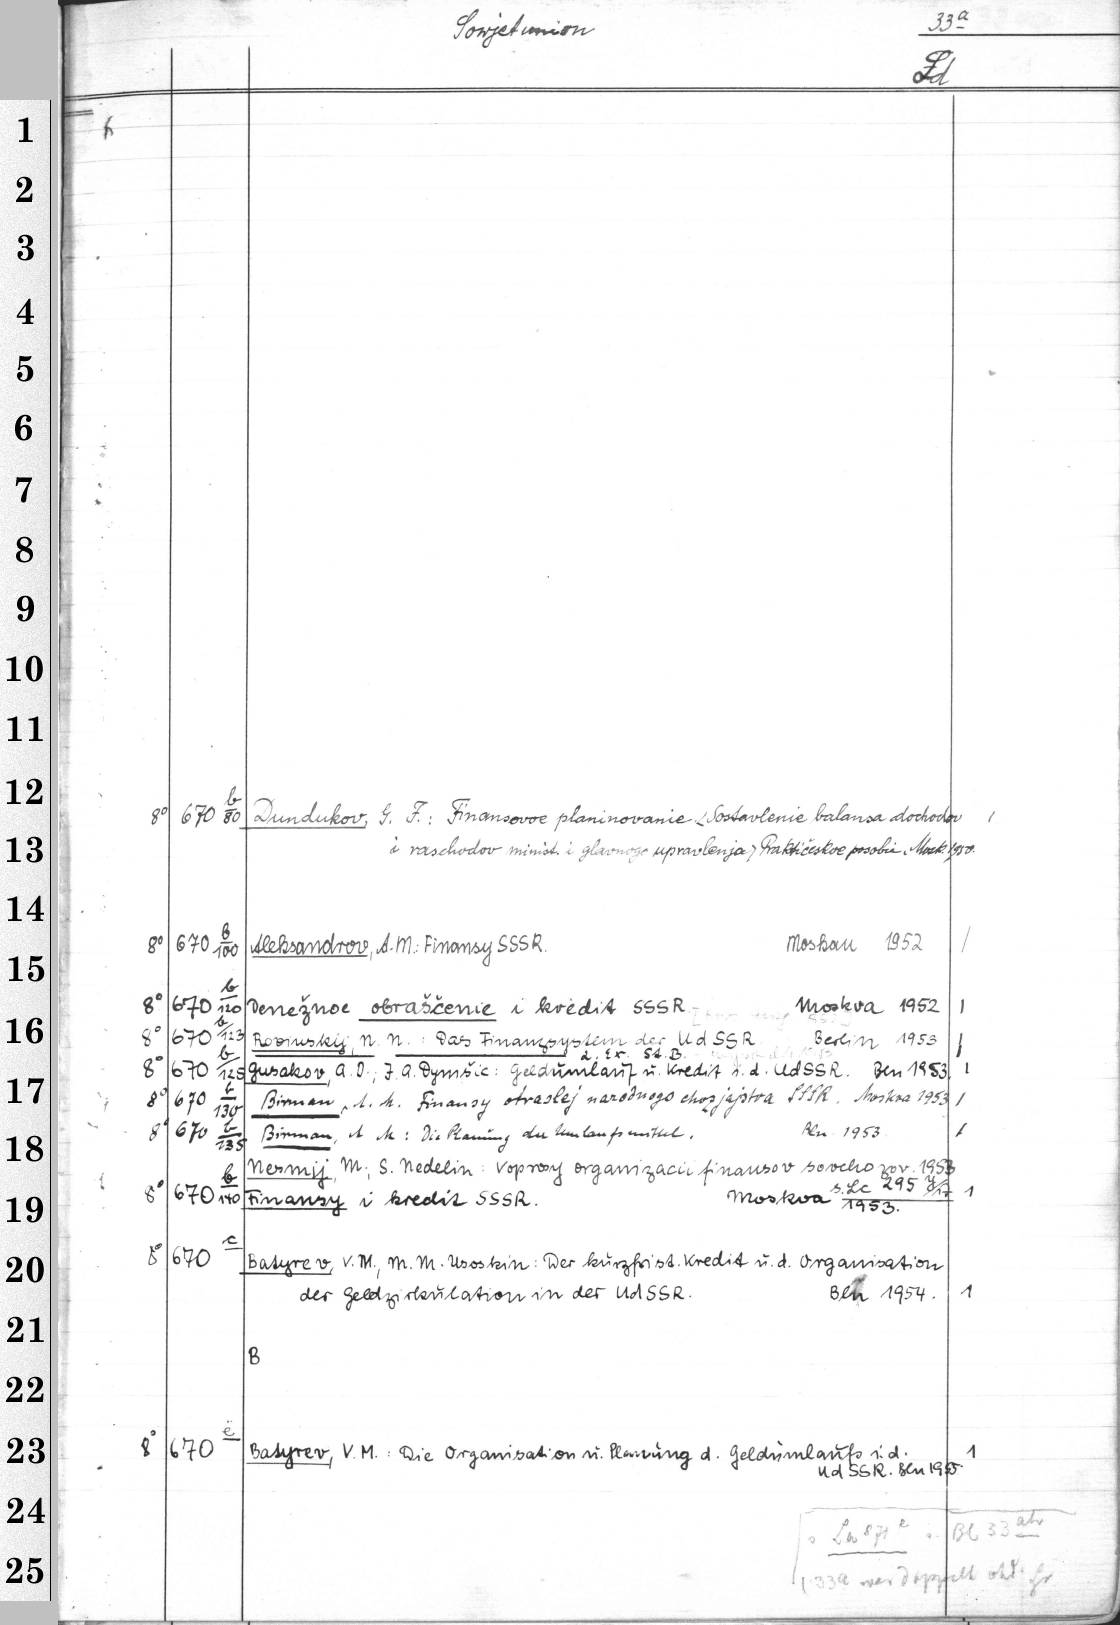 Sowjetunion 33a
Ld
1
2
3
4
5
6
7
8
9
10
11
12
8° 670 b/80 Dundukov, G. F.: Finansovoe planinovanie (Sostavlenie balansa dochodov 1
13
i raschodov minist. i glavnogo upravlenja) Praktičeskoe posobie. Mosk. 1950.
14
8° 670 b/100 Aleksandrov, A. M.: Finansy SSSR. Moskau 1952 1
15
8° 670 b/120 Denežnoe obraščenie i kredit SSSR Moskva 1952 1
16
8° 670 b/123 Rovinskij, N. N.: Das Finanzsystem der UdSSR Berlin 1953 1
2. Ex. St. B.
8° 670 b/125 Gusakov, A. D.; J. A. Dymšic: Geldumlauf u. Kredit i. d. UdSSR. Bln 1953. 1
17
8° 670 b/130 Birman, A. M. Finansy otraslej narodnogo chozjajstva SSSR. Moskva 1953 1
8° 670 b/135 Birman, A. M.: Die Planung der Umlaufsmittel. Bln. 1953 1
18
Nesmij, M.; S. Nedelin: Voprosy organizacii finansov sovchozov. 1953
s. Lc 295
8° 670 b/140 Finansy i kredit SSSR. Moskva 1953. 1
19
8° 670 c Batyrev, V. M., M. M. Usoskin: Der kurzfrist. Kredit u. d. Organisation
20
der Geldzirkulation in der UdSSR. Bln 1954. 1
21
B
22
23
8° 670 e Batyrev, V. M.: Die Organisation u. Planung d. Geldumlaufs i. d. 1
UdSSR. Bln 1955.
24
Bl 33
25
33a war doppelt